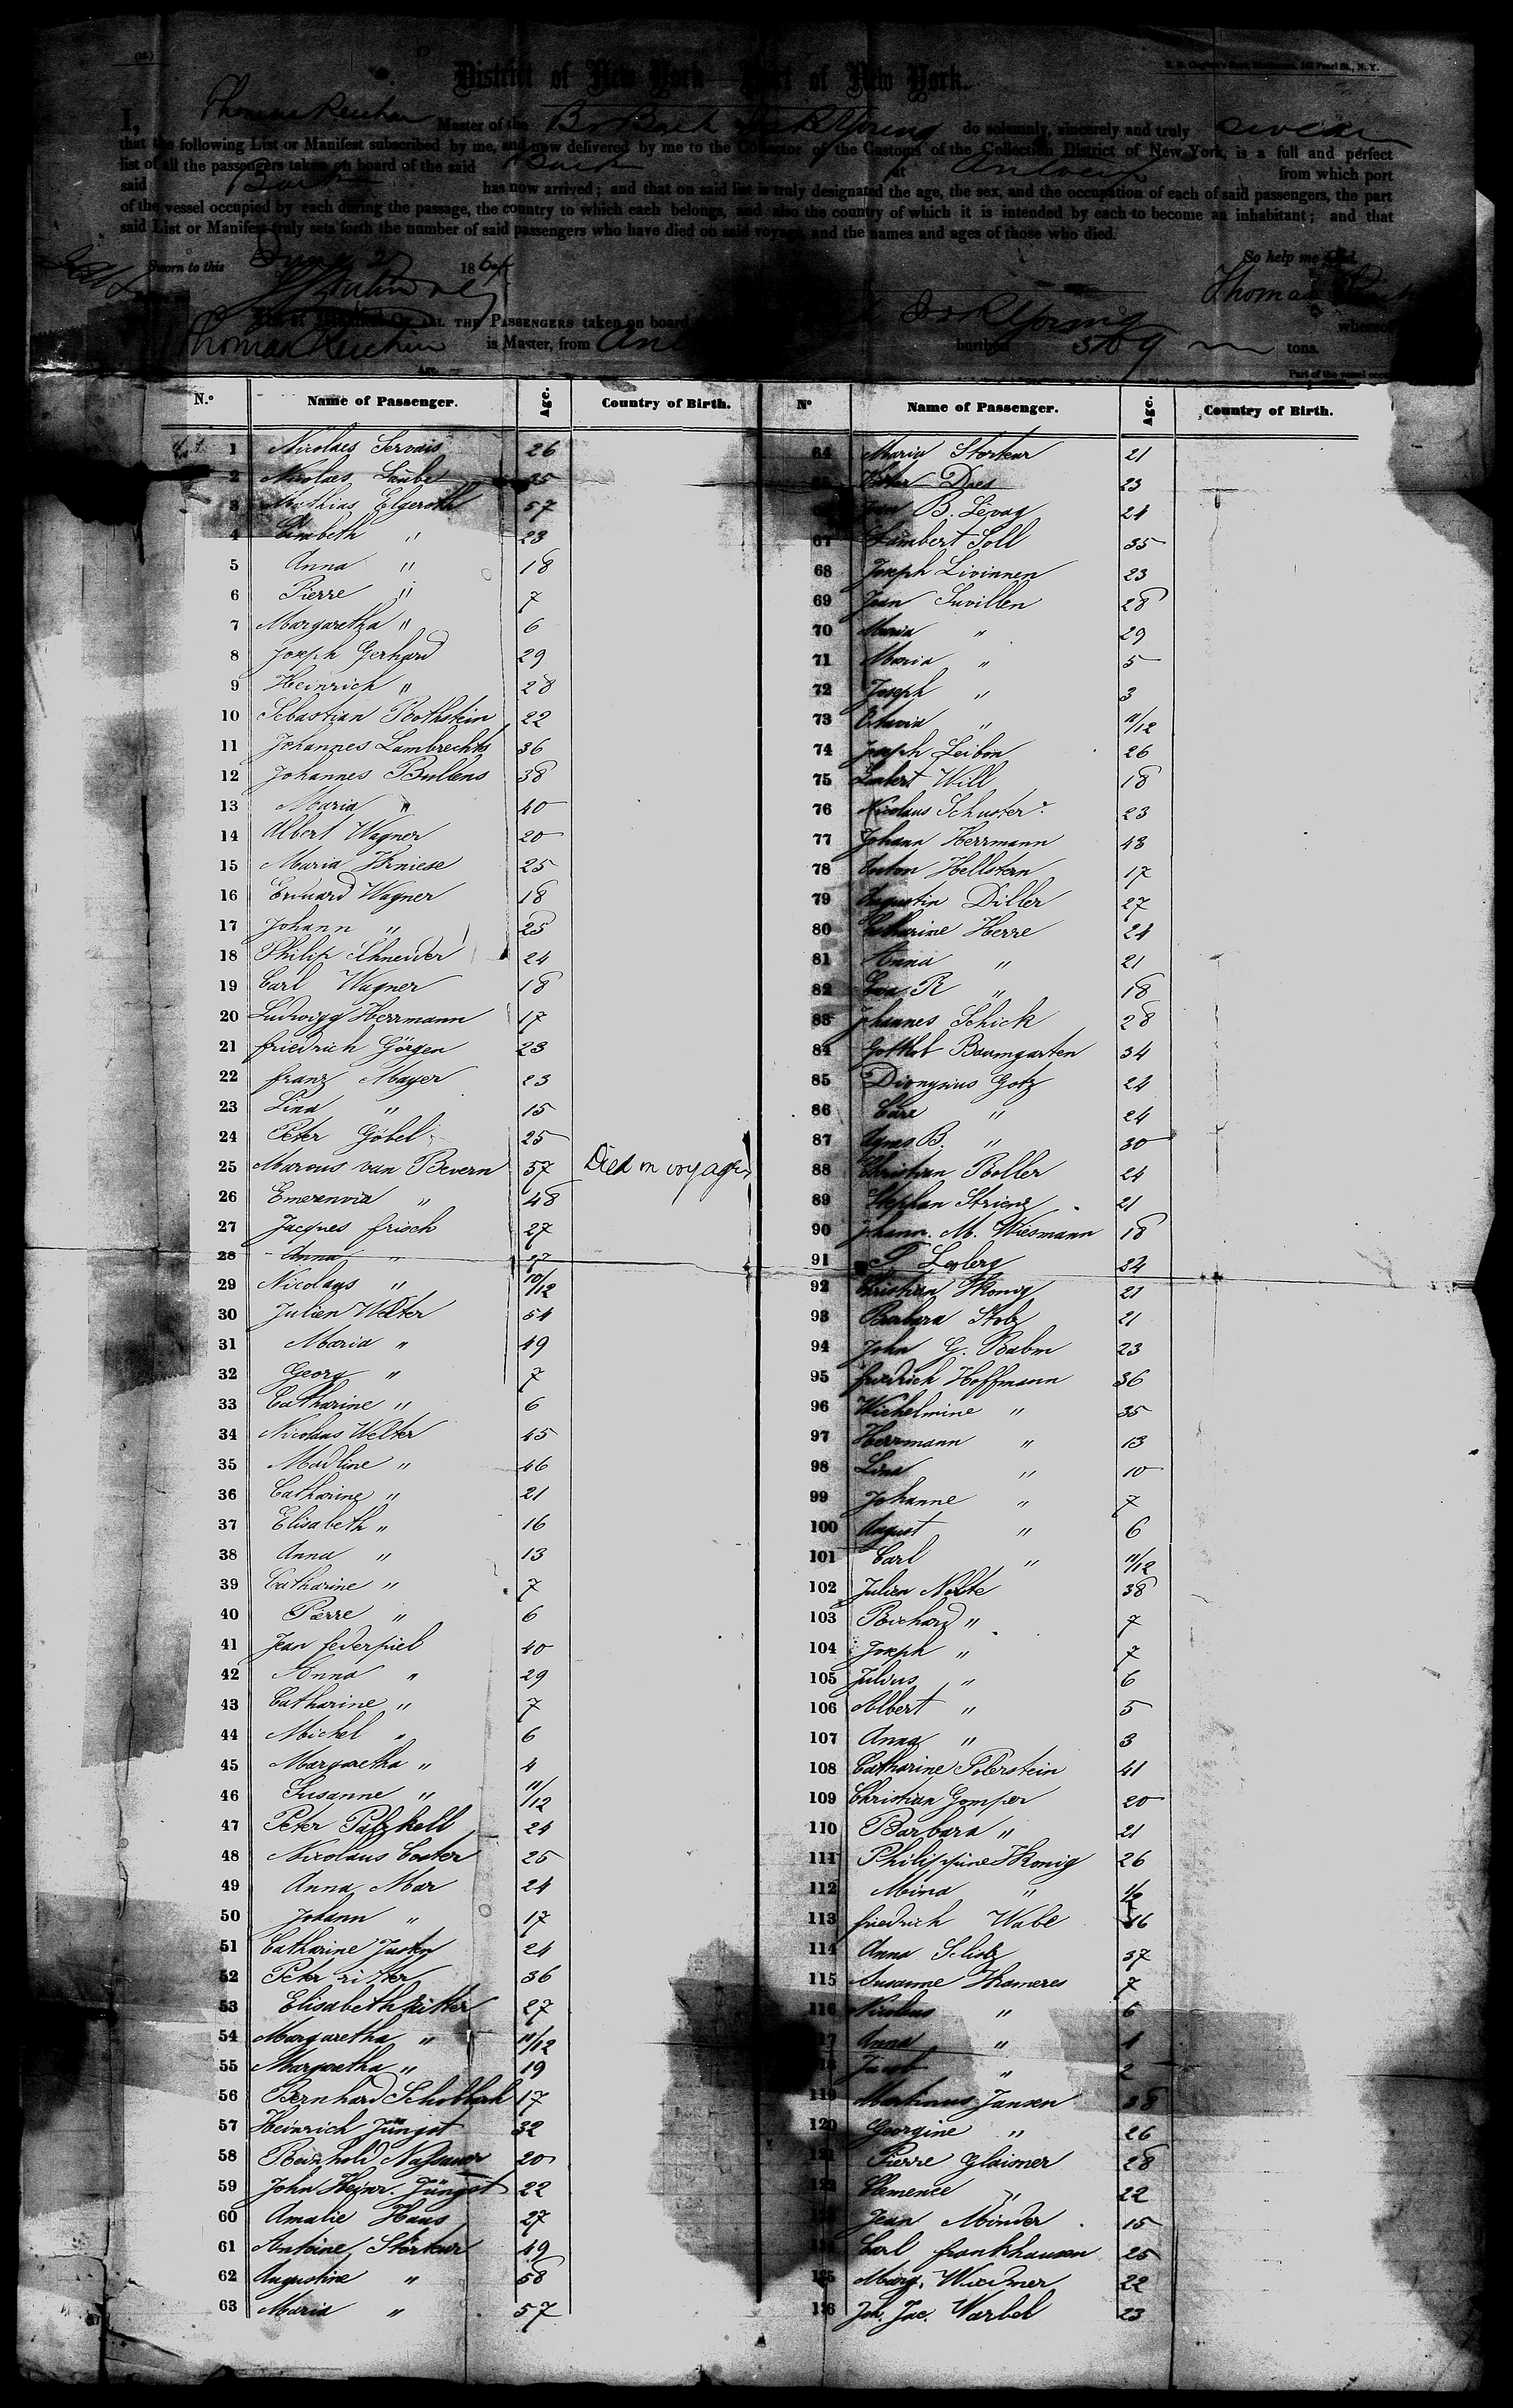 District of New York Port of New York.
I, Thomas Master of the do solemnly, sincerely and truly swear
that the following List or Manifest subscribed by me, and now delivered by me to the Collector of the Customs of the Collection District of New York, is a full and perfect
list of all the passengers taken on board of the said Bark at Antwerp from which port
said Bark has now arrived; and that on said list is truly designated the age, the sex, and the occupation of each of said passengers, the part
of the vessel occupied by each during the passage, the country to which each belongs, and also the country of which it is intended by each to become an inhabitant; and that
said List or Manifest truly sets forth the number of said passengers who have died on said voyage, and the names and ages of those who died.
Sworn to this 1864 So help me God.
Thomas
ALL THE PASSENGERS taken on board whereof
Thomas is Master, from burthen tons.
N.º Name of Passenger. Age. Country of Birth.
1 Nicolaes Servais 26
2 Nicolaes 35
3 Mathias Elgeroth 57
4 " 23
5 Anna " 18
6 Pierre " 7
7 Margaretha " 6
8 Joseph Gerhard 29
9 Heinrich " 28
10 Sebastian Rothstein 22
11 Johannes Lambrechts 36
12 Johannes Bullens 38
13 Maria " 40
14 Albert Wagner 20
15 Maria Kniese 25
16 Eduard Wagner 18
17 Johann " 25
18 Philip Schneider 24
19 Carl Wagner 18
20 Ludwigg Herrmann 17
21 friedrich Görgen 23
22 franz Mayer 23
23 Lina " 15
24 Peter Göbel 25
25 Marcus van Bevern 57 Died on voyage
26 " 48
27 Jacques frisch 27
28 Anna " 27
29 Nicolays " 10/12
30 Julien Welter 54
31 Maria " 49
32 Georg " 7
33 Catharine " 6
34 Nicolaus Welter 45
35 Madline " 46
36 Catharine " 21
37 Elisabeth " 16
38 Anna " 13
39 Catharine " 7
40 Pierre " 6
41 Jean federpiel 40
42 Anna " 29
43 Catharine " 7
44 Michel " 6
45 Margaretha " 4
46 Susanne " 11/12
47 Peter 24
48 Nicolaus Coster 25
49 Anna Mar 24
50 Johann " 17
51 Catharine 24
52 Peter ritter 36
53 Elisabeth Ritter 27
54 Margaretha " 11/12
55 Margaretha " 19
56 Bernhard 17
57 Heinrich Jüngst 32
58 Reinhold Nassauer 20
59 John Heinr. Jüngst 22
60 Amalie Haus 27
61 Antoine Storkeur 49
62 Augustine " 58
63 Maria " 57
Nº Name of Passenger. Age. Country of Birth.
64 Maria Storkeur 21
Does 23
B. Levag 24
67 Lambert Soll 35
68 Joseph Livinnen 23
69 Jean Suvillen 28
70 Maria " 29
71 Maria " 5
72 Joseph " 3
73 " 11/12
74 Joseph Leibon 26
75 Will 18
76 Nicolaus Schuster 23
77 Johann Herrmann 43
78 Anton Hellstern 17
79 Augustin Diller 27
80 Catharine Herre 24
81 Anna " 21
82 Eva R " 18
83 Johannes Schick 28
84 Gotthob Baumgarten 34
85 Dionysius Gotz 24
86 " 24
87 Agnes B. " 30
88 Christian Roller 24
89 Stephan Strienz 21
90 Johann. M. Wiesmann 18
91 24
92 Christian Konig 21
93 Barbara Stolz 21
94 John G. Rabm 23
95 friedrich Hoffmann 36
96 Wichelmine " 35
97 Herrmann " 13
98 Lina " 10
99 Johanne " 7
100 August " 6
101 Carl " 11/12
102 Julien Nolte 38
103 Richard " 7
104 Joseph " 7
105 Julius " 6
106 Albert " 5
107 Anna " 3
108 Catharine Poberstein 41
109 Christian Gomper 20
110 Barbara " 21
111 Philippine Konig 26
112 Mina " 1/2
113 friedrich Wabe 16
114 Anna 37
115 Susanne Krameres 7
116 Nicolaus " 6
117 Anna " 4
Jacob " 2
119 Martinus Jansen 38
120 Georgine " 26
121 Pierre Glaimer 28
Clemence " 22
Jean Minder 15
Carl frankhausen 25
125 Marg. Widmer 22
126 Joh. Jac. Warbel 23